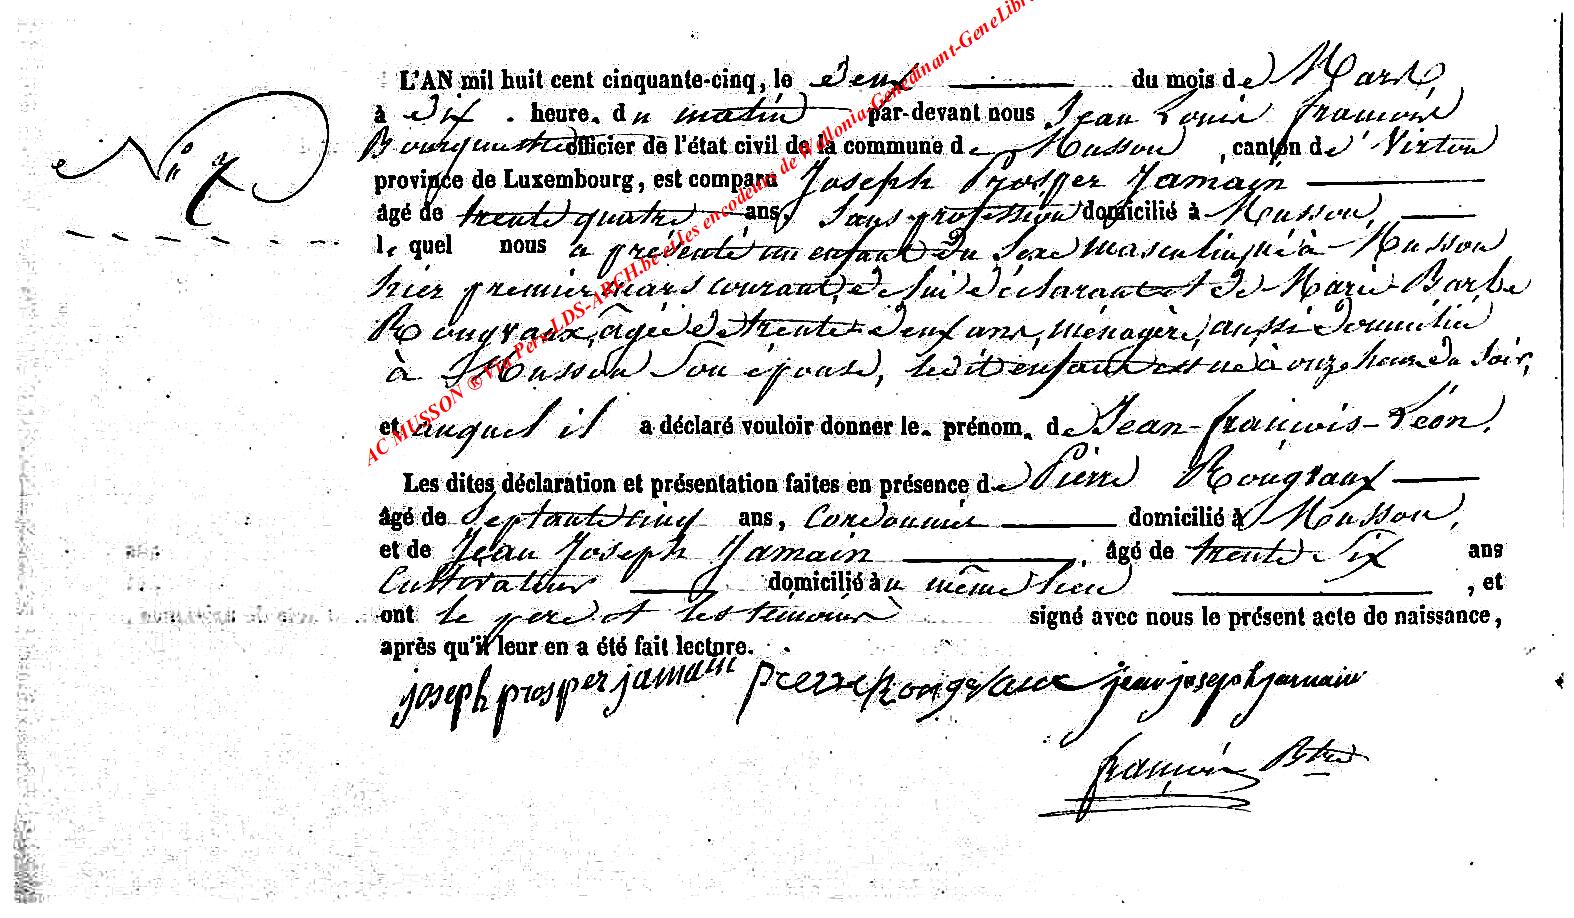 L'AN mil huit cent cinquante-cinq, le deux du mois de Mars,
à dix heure. du matin par-devant nous Jean Louis françois
Bourgmestre officier de l'état civil de la commune de Musson, canton de Virton
Nº 7
province de Luxembourg, est comparu Joseph Prosper Jamain
âgé de trente quatre ans, Sans profession domicilié à Musson,
le quel nous a présenté un enfant du sexe masculin, né à Musson
hier premier mars courant, de lui déclarant et de Marie Barbe
Rougvaux, âgée de trente deux ans, ménagère, aussi domicilié
à Musson Son épouse, ledit enfant est né à onze heure du Soir,
et auquel il a déclaré vouloir donner le. prénom. de Jean-françois-Léon.
Les dites déclaration et présentation faites en présence de Pierre Rougvaux
âgé de Septante cinq ans, Cordonnier domicilié à Musson,
et de Jean Joseph Jamain âgé de trente Six ans
Cultivateur domicilié au même lieu, et
ont le père et les témoins signé avec nous le présent acte de naissance,
après qu'il leur en a été fait lecture.
joseph prosper jamain pierre Rougvaux jean joseph jamain
françois Btre
AC MUSSON ® Via Pers LDS-ARCH.be et les encodeurs de Wallonia-Genedinant-GeneLibr